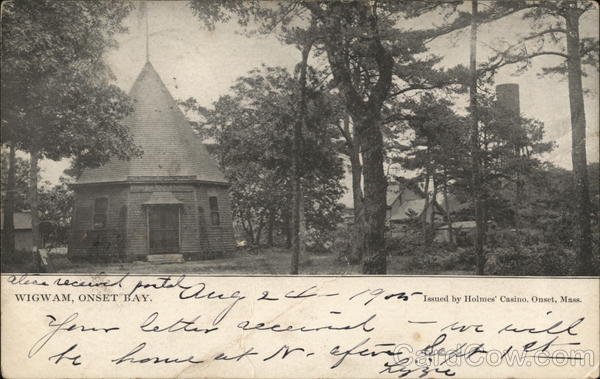 also received postal
WIGWAM, ONSET BAY. Aug 24 - 1905 Issued by Holmes' Casino, Onset, Mass.
Your letter received - we will
be home at N. after Sept 1st.
Lizzie
CardCow.com